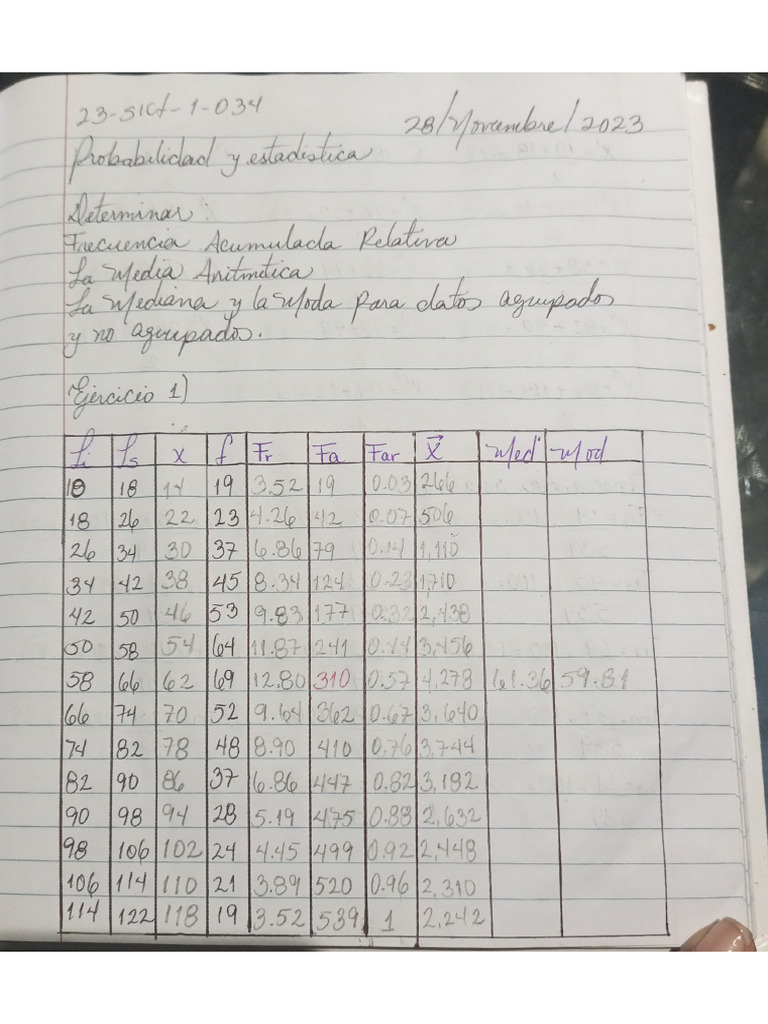 23-SICT-1-034
28/Noviembre/2023
Probabilidad y estadistica
Determinar:
Frecuencia Acumulada Relativa
La Media Aritmética
La Mediana y la Moda para datos agrupados
y no agrupados.
Ejercicio 1)
Li Ls x f Fr Fa Far X̄ Med Mod
10 18 14 19 3.52 19 0.03 266
18 26 22 23 4.26 42 0.07 506
26 34 30 37 6.86 79 0.14 1,110
34 42 38 45 8.34 124 0.23 1,710
42 50 46 53 9.83 177 0.32 2,438
50 58 54 64 11.87 241 0.44 3,456
58 66 62 69 12.80 310 0.57 4,278 61.36 59.81
66 74 70 52 9.64 362 0.67 3,640
74 82 78 48 8.90 410 0.76 3,744
82 90 86 37 6.86 447 0.82 3,182
90 98 94 28 5.19 475 0.88 2,632
98 106 102 24 4.45 499 0.92 2,448
106 114 110 21 3.89 520 0.96 2,310
114 122 118 19 3.52 539 1 2,242